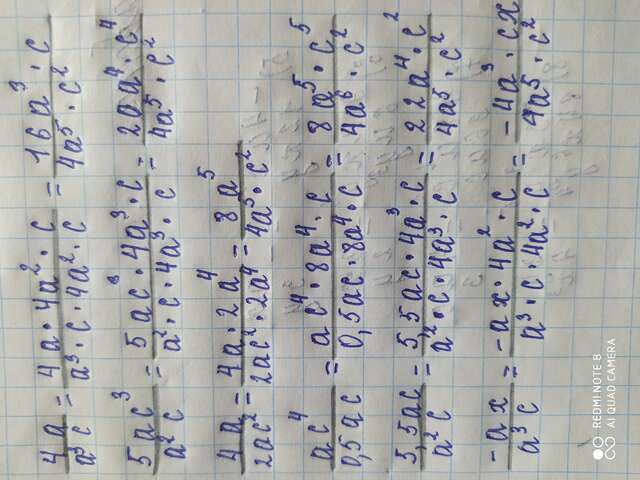 4a/a³c = 4a · 4a² · c/a³ · c · 4a² · c = 16a³ · c/4a⁵ · c²
5ac³/a²c = 5ac · 4a³ · c/a² · c · 4a³ · c = 20a⁴ · c⁴/4a⁵ · c²
4a/2ac² = 4a · 2a⁴/2ac² · 2a⁴ = 8a⁵/4a⁵ · c²
ac⁴/0,5ac = ac⁴ · 8a⁴ · c/0,5ac · 8a⁴ · c = 8a⁵ · c⁵/4a⁶ · c²
5,5ac/a²c = 5,5ac · 4a³ · c/a² · c · 4a³ · c = 22a⁴ · c²/4a⁵ · c²
-ax/a³c = -ax · 4a² · c/a³ · c · 4a² · c = -4a³ · cx/4a⁵ · c²
REDMI NOTE 8
AI QUAD CAMERA